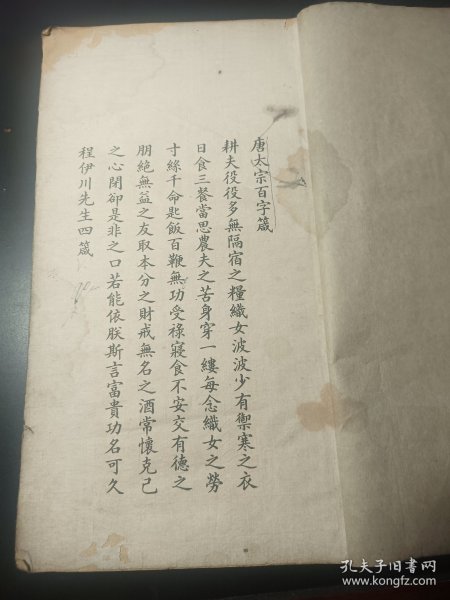 唐太宗百字箴
耕夫役役多無隔宿之糧織女波波少有禦寒之衣
日食三餐當思農夫之苦身穿一縷每念織女之勞
寸絲千命匙飯百鞭無功受祿寢食不安交有德之
朋絕無益之友取本分之財戒無名之酒常懷克己
之心閉卻是非之口若能依朕斯言富貴功名可久
程伊川先生四箴
孔夫子旧书网
www.kongfz.com